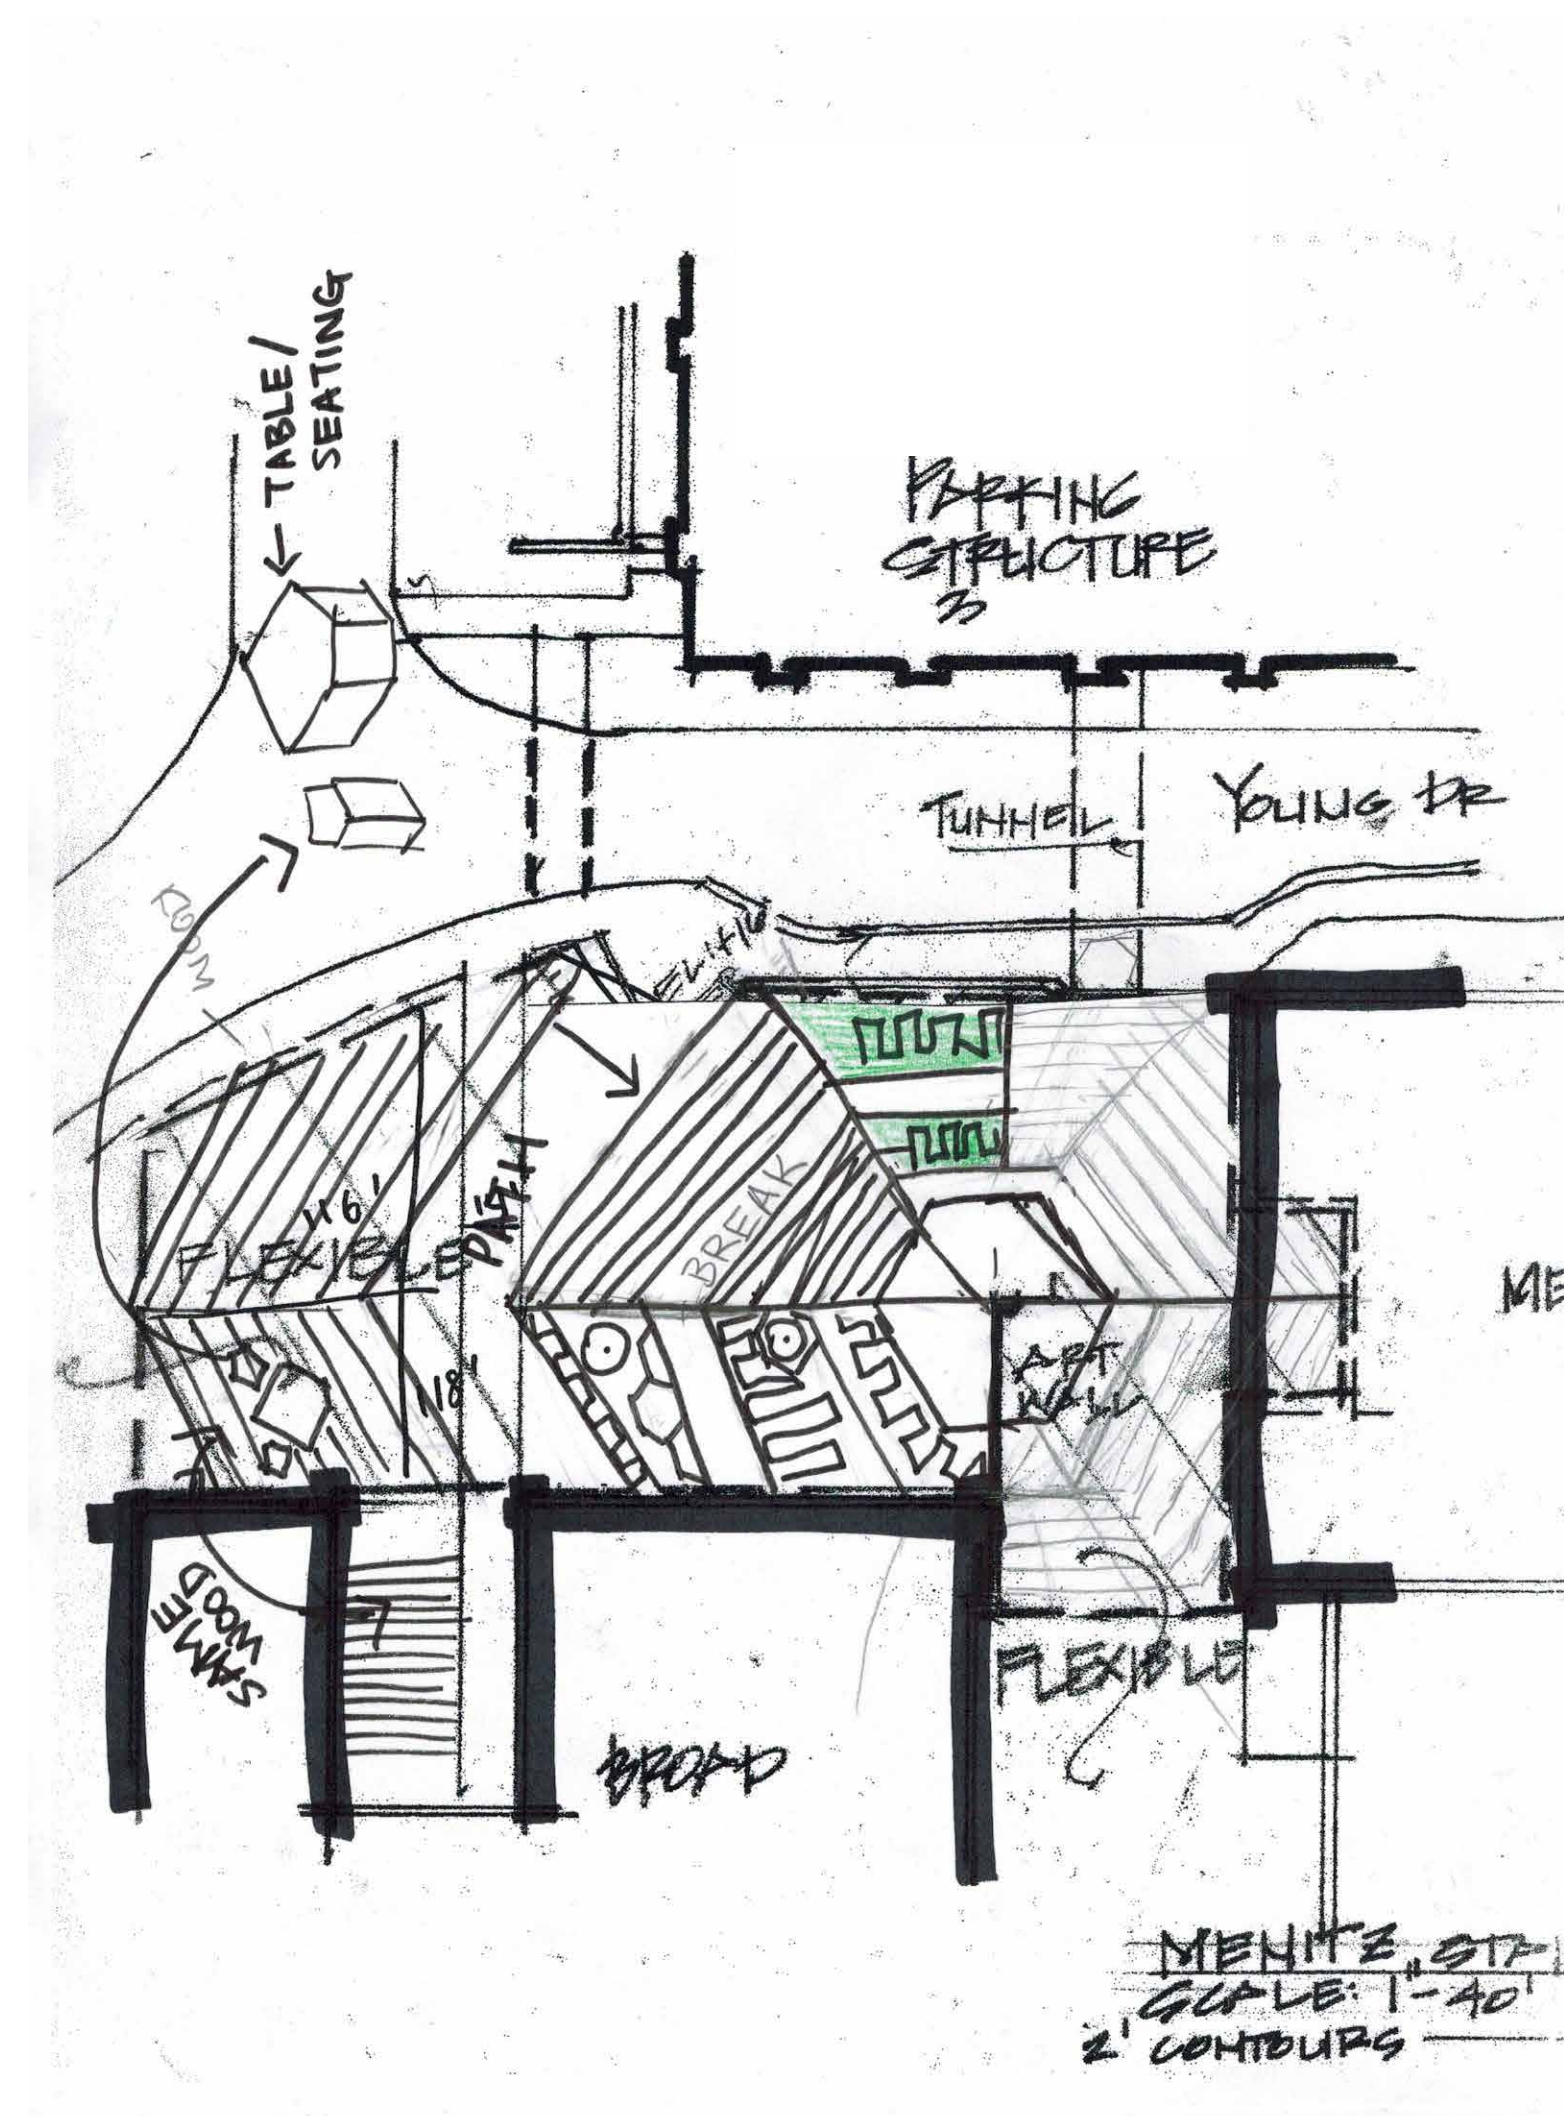 TABLE/
SEATING
PARKING
STRUCTURE
3
YOUNG DR
TUNNEL
ROOM
PATH
116'
FLEXIBLE
BREAK
118'
ART
WALL
ME
SAME
WOOD
FLEXIBLE
BROAD
MENITZ, STA
SCALE: 1"-40'
2' CONTOURS